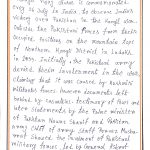 Vijay Diwas is commemorated
every 26 July in India, to observe India's
victory over Pakistan in the Kargil war
the Pakistan Forces from their
on the mountain tops
of Northern Kargil District in Ladakh,
in 1999. Initially, the Pakistani army
denied their involvement in the war,
claiming that it was caused by Kashmiri
militants forces however documents left
behind by casualties, testimony of POWs and
later statements by the Prime Minister
of Pakistan Nawaz Sharif and Pakistan
army chief of army staff Pervez Musharraf
pointed to the involvement of Pakistani
military forces, led by General